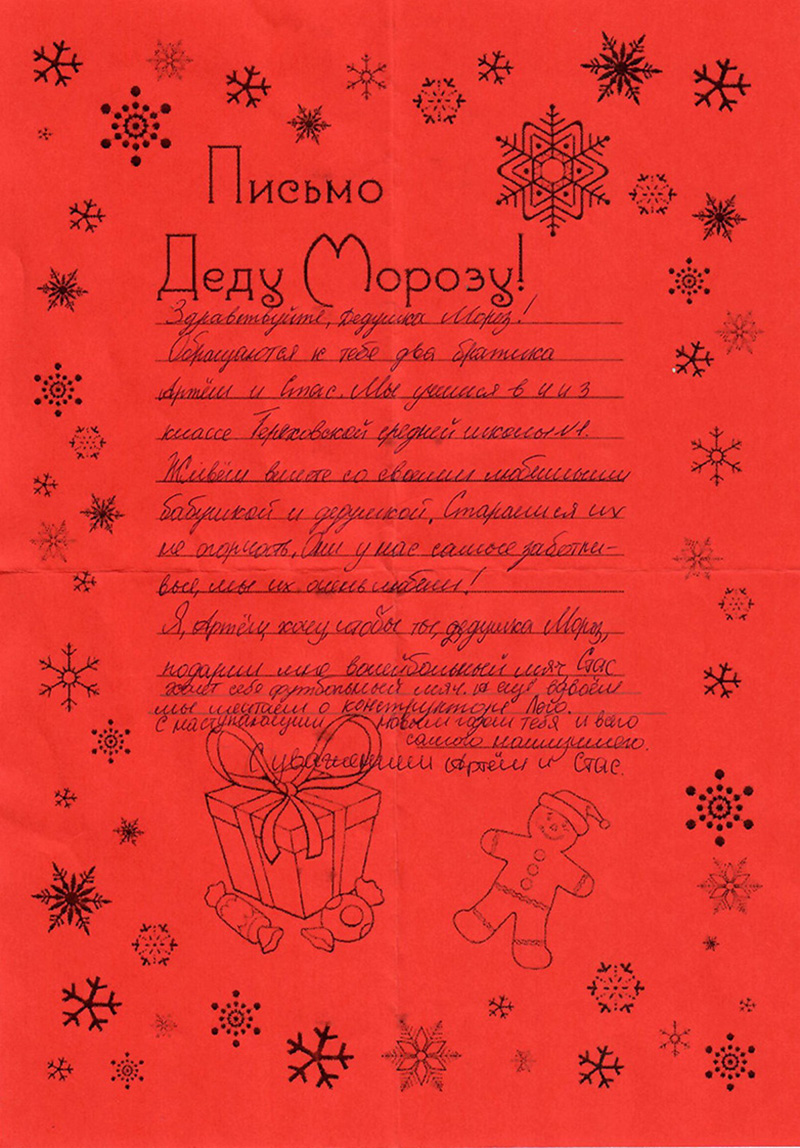 Письмо
Деду Морозу!
Здравствуйте, Дедушка Мороз!
Обращаются к тебе два братика
Артём и Стас. Мы учимся в 4 и 3
классе Тереховской средней школы №1.
Живём вместе со своими любимыми
бабушкой и дедушкой. Стараемся их
не огорчать. Они у нас самые заботли-
вые, мы их очень любим!
Я, Артём, хочу, чтобы ты, дедушка Мороз,
подарил мне волейбольный мяч, Стас
хочет себе футбольный мяч. А еще вдвоём
мы мечтаем о конструкторе Лего.
С наступающим новым годом тебя и всего
самого наилучшего.
С уважением Артём и Стас.